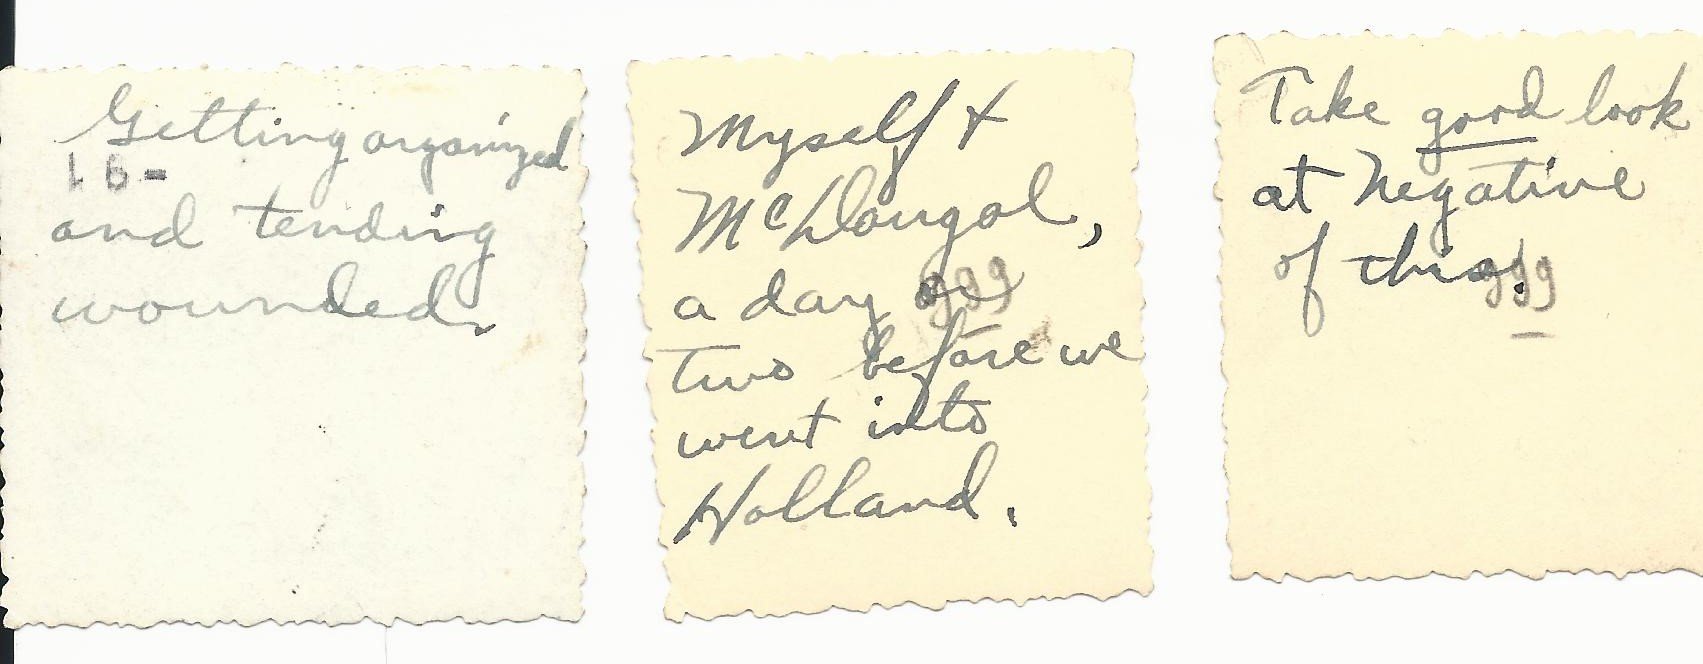 Getting organized
and tending
wounded.
Myself &
McDougol,
a day or
two before we
went into
Holland.
Take good look
at Negative
of this.